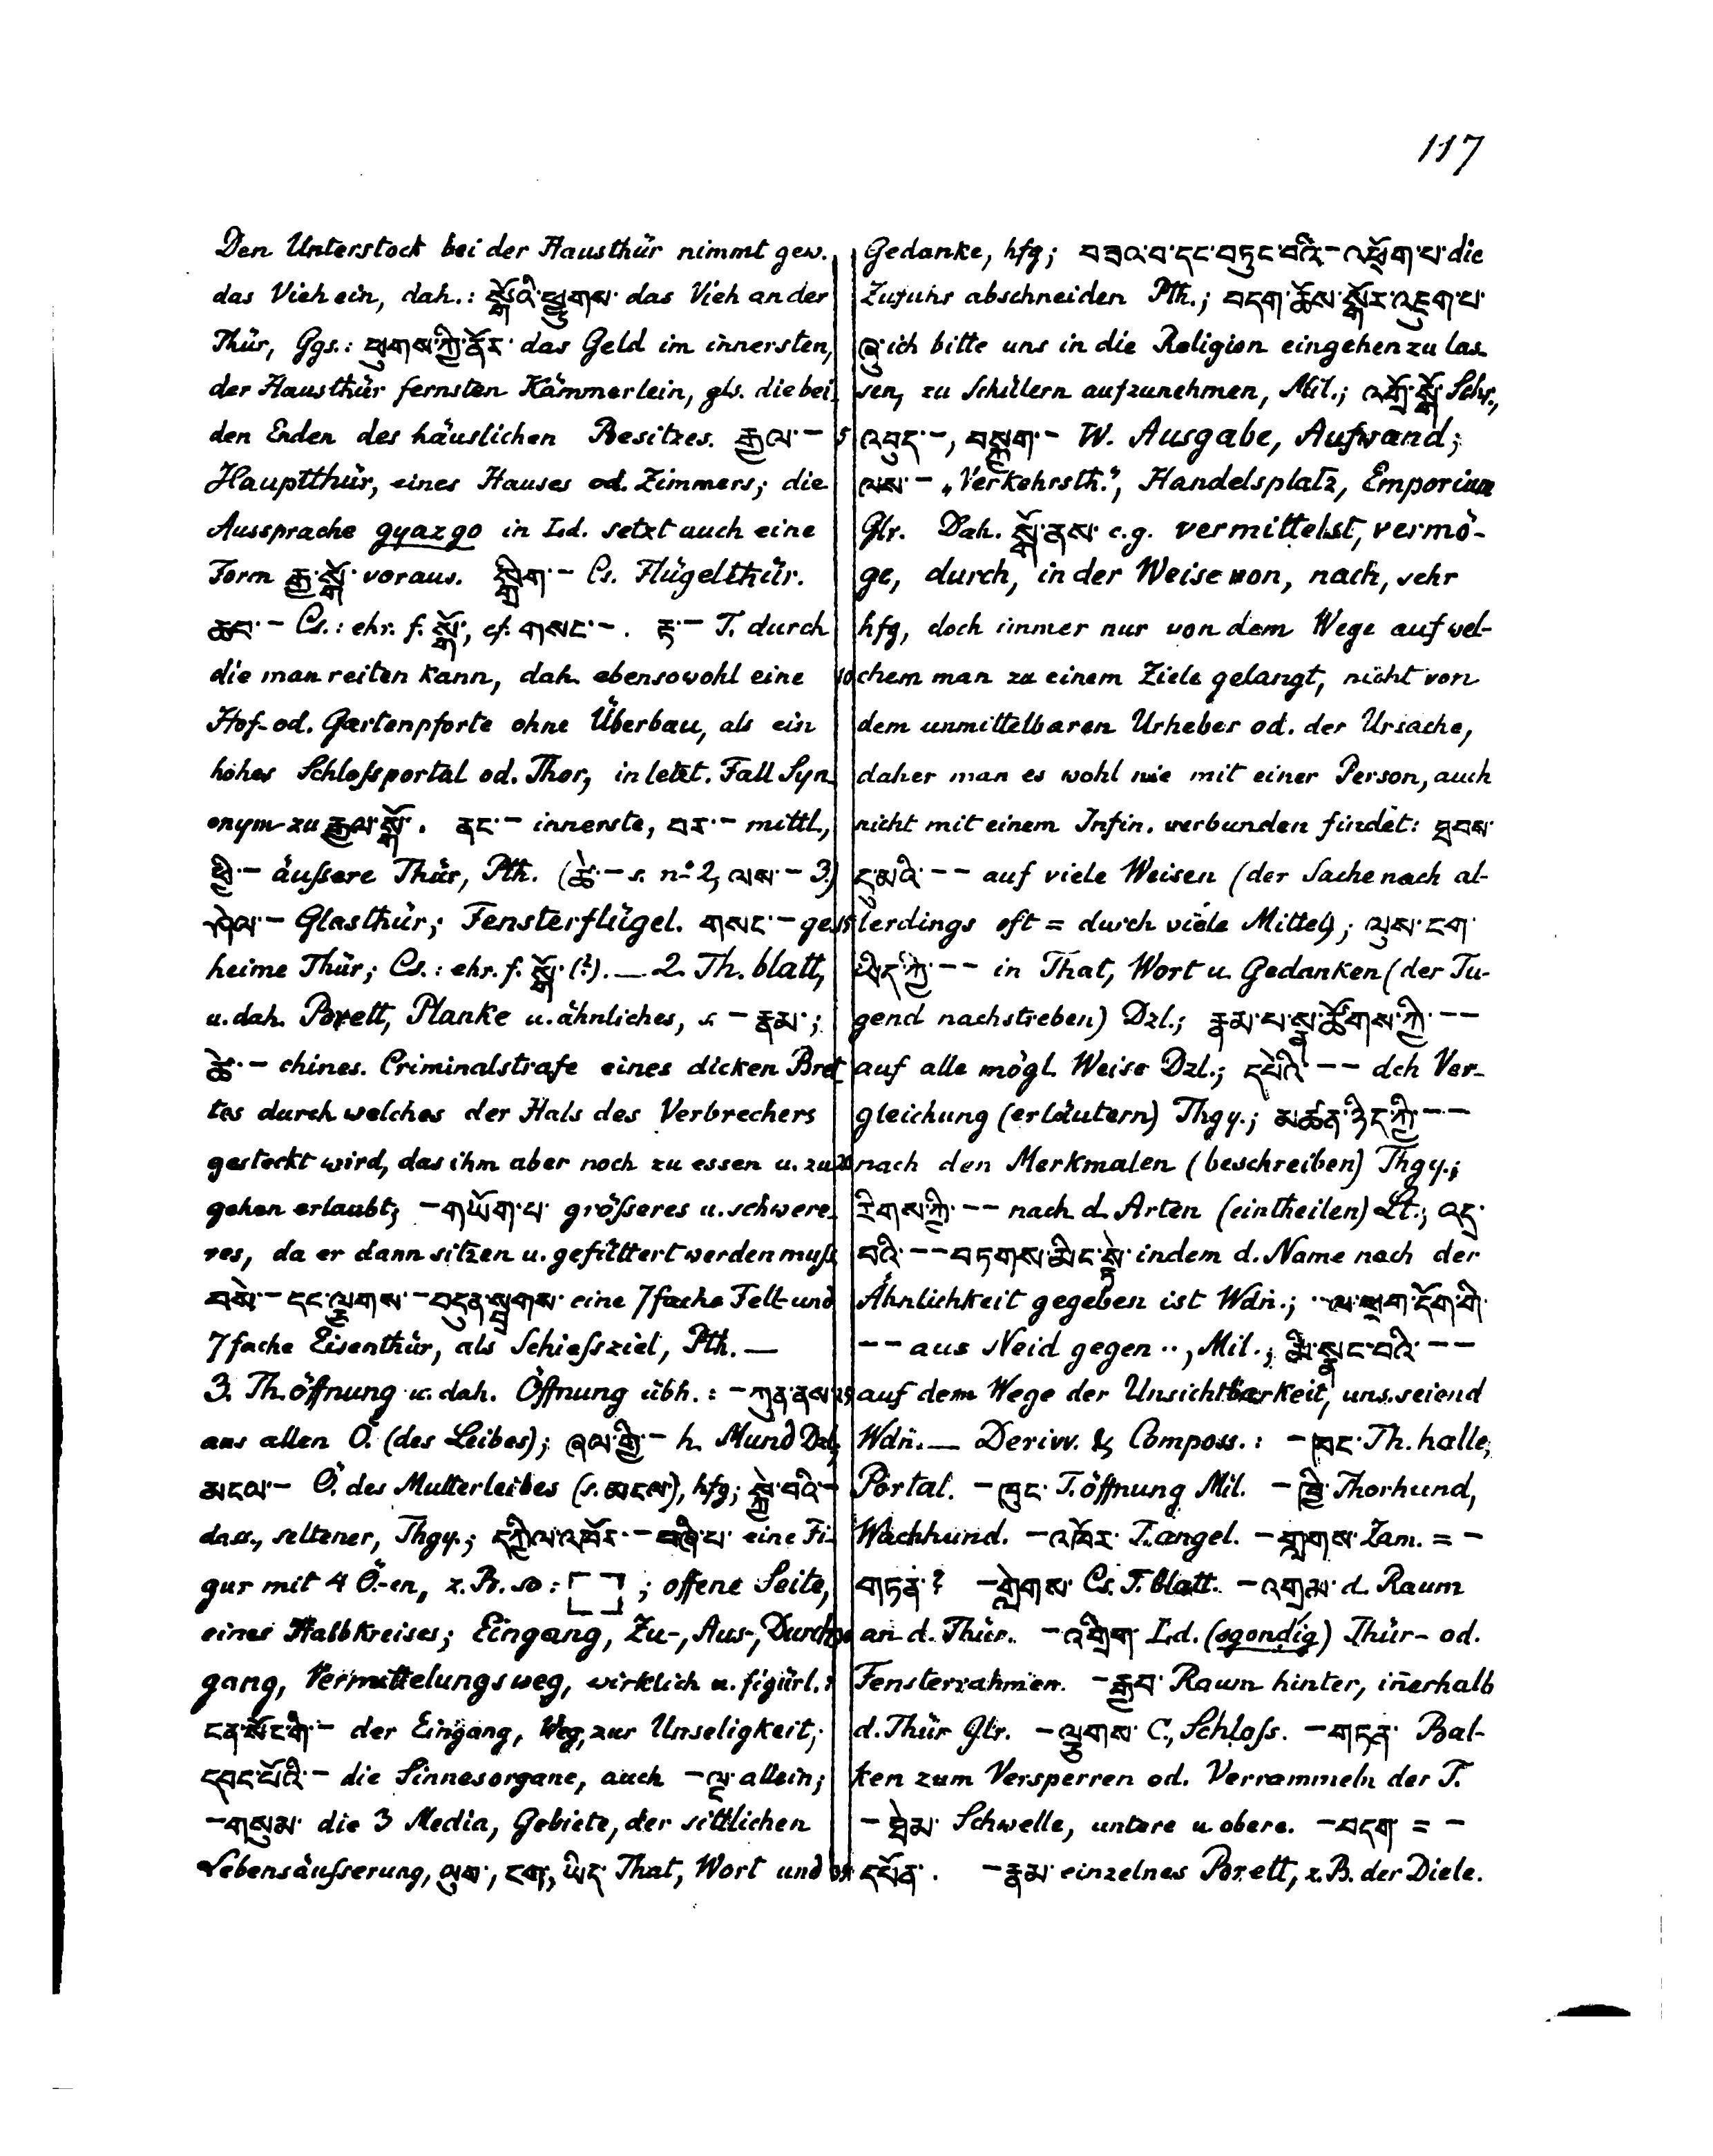 117
Den Unterstock bei der Hausthür nimmt gew.
das Vieh ein, dah.: སྒོའི་ཕྱུགས་ das Vieh an der
Thür, Ggs.: ཕུགས་ཀྱི་ནོར་ das Geld im innersten,
der Hausthür fernsten Kämmerlein, gls. die bei-
den Enden des häuslichen Besitzes. རྒྱལ་–
Hauptthür, eines Hauses od. Zimmers; die
Aussprache gyazgo in Ld. setzt auch eine
Form རྒྱ་སྒོ་ voraus. སྒྲིག་– Cs. Flügelthür.
ཆབ་– Cs.: ehr. f. སྒོ་, cf. གསང་–. རྟ་– T. durch
die man reiten kann, dah. ebensowohl eine
Hof- od. Gartenpforte ohne Überbau, als ein
hohes Schloßportal od. Thor, in letzt. Fall Syn-
onym zu རྒྱལ་སྒོ་. ནང་– innerste, བར་– mittl.,
ཕྱི་– äußere Thür, Pth. (ཚེ་– s. no 2, ལས་– 3.)
ཤེལ་– Glasthür; Fensterflügel. གསང་– ge-
heime Thür; Cs.: ehr. f. སྒོ་ (?). — 2. Th. blatt,
u. dah. Brett, Planke u. ähnliches, s. –རྣམ་;
ཚེ་– chines. Criminalstrafe eines dicken Bret-
tes durch welches der Hals des Verbrechers
gesteckt wird, das ihm aber noch zu essen u. zu
gehen erlaubt; –གཡོག་པ་ größeres u. schwere-
res, da er dann sitzen u. gefüttert werden muß
བསེ་–དང་ལྕགས་–བདུན་སྦྲགས་ eine 7fache Fell- und
7fache Eisenthür, als Schießziel, Pth. —
3. Th. öffnung u. dah. Öffnung übh.: –ཀུན་ནས་
aus allen Ö. (des Leibes); ཞལ་གྱི་– h. Mund Dzl.,
མངལ་– Ö. des Mutterleibes (s. མངལ་), hfg; སྐྱེ་བའི་–
dass., seltener, Thgy.; དཀྱིལ་འཁོར་–བཞི་པ་ eine Fi-
gur mit 4 Ö.-en, z. B. so: ; offene Seite,
eines Halbkreises; Eingang, Zu-, Aus-, Durch-
gang, Vermittelungsweg, wirklich u. figürl.:
ངན་སོང་གི་– der Eingang, Weg, zur Unseligkeit;
དབང་པོའི་– die Sinnesorgane, auch –ལྔ་ allein;
–གསུམ་ die 3 Media, Gebiete, der sittlichen
Lebensäußerung, ལུག་, ངག་, ཡིད་ That, Wort und
Gedanke, hfg; བཟའ་བ་དང་བཏུང་བའི་–འཕྲོག་པ་ die
Zufuhr abschneiden Pth.; བདག་ཆོས་སྒོར་འཇུག་པ་
ཞུ་ ich bitte uns in die Religion eingehen zu las-
sen, zu Schülern aufzunehmen, Mil.; འགྲོ་སྒོ་ Schr.,
འབུད་–, བསྐྱག་– W. Ausgabe, Aufwand;
ལས་– „Verkehrsth.", Handelsplatz, Emporium
Glr. Dah. སྒོ་ནས་ c. g. vermittelst, vermö-
ge, durch, in der Weise von, nach, sehr
hfg, doch immer nur von dem Wege auf wel-
chem man zu einem Ziele gelangt, nicht von
dem unmittelbaren Urheber od. der Ursache,
daher man es wohl nie mit einer Person, auch
nicht mit einem Infin. verbunden findet: ཐབས་
དུ་མའི་–– auf viele Weisen (der Sache nach al-
lerdings oft = durch viele Mittel); ལུས་ངག་
ཡིད་ཀྱི་–– in That, Wort u. Gedanken (der Tu-
gend nachstreben) Dzl.; རྣམ་པ་སྣ་ཚོགས་ཀྱི་––
auf alle mögl. Weise Dzl.; དཔེའི་–– dch Ver-
gleichung (erläutern) Thgy.; མཚན་ཉིད་ཀྱི་––
nach den Merkmalen (beschreiben) Thgy.;
རིགས་ཀྱི་–– nach d. Arten (eintheilen) Lt.; འདྲ་
བའི་––བཏགས་མིང་སྟེ་ indem d. Name nach der
Ähnlichkeit gegeben ist Wdn.; ··ལ་ཕྲག་དོག་གི་
–– aus Neid gegen ··, Mil.; མི་སྣང་བའི་––
auf dem Wege der Unsichtbarkeit, uns. seiend
Wdn. — Derivv. & Composs.: –ཁང་ Th. halle,
Portal. –ཁུང་ T. öffnung Mil. –ཁྱི་ Thorhund,
Wachhund. –འཁོར་ T. angel. –གླགས་ Zam. = –
གཏན་? –གླེགས་ Cs. T. blatt. –འགྲམ་ d. Raum
an d. Thür. –འགྲིག་ Ld. (sgondig) Thür- od.
Fensterrahmen. –རྒྱབ་ Raum hinter, iñerhalb
d. Thür Glr. –ལྕགས་ C., Schloß. –གཏན་ Bal-
ken zum Versperren od. Verrammeln der T.
–ཐེམ་ Schwelle, untere u. obere. –བདག་ = –
དཔོན་. –རྣམ་ einzelnes Brett, z. B. der Diele.